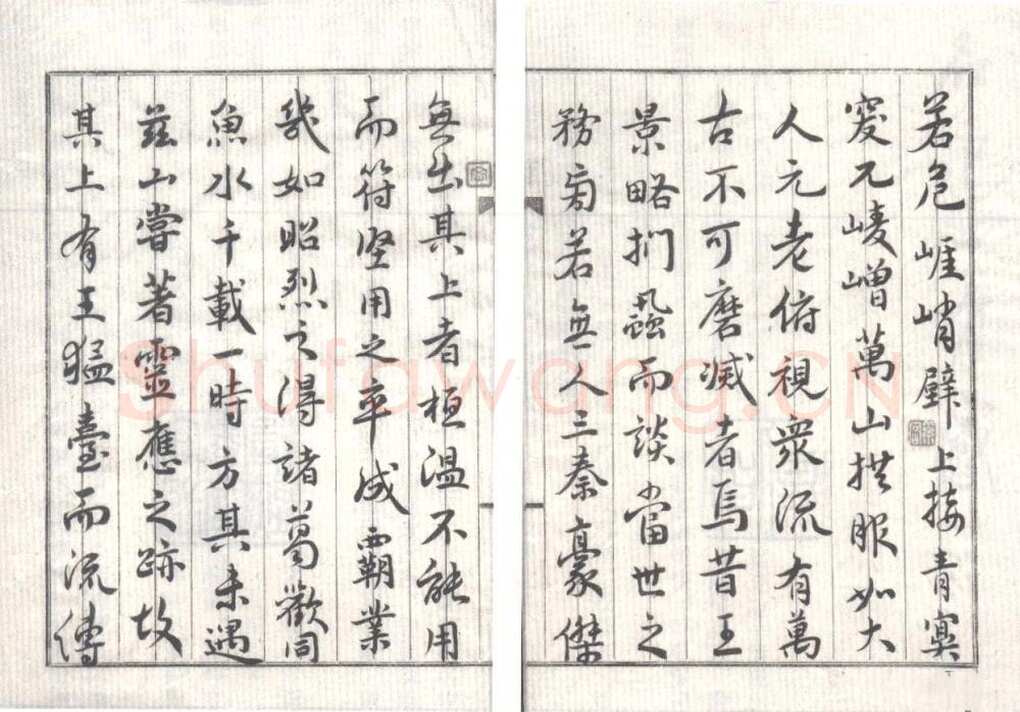 若危崕峭壁上接青冥
窔兀崚嶒萬山拱服如大
人元老俯視衆流有萬
古不可磨滅者焉昔王
景略捫蝨而談當世之
務旁若無人三秦豪傑
無出其上者桓温不能用
而符堅用之卒成覇業
幾如昭烈之得諸葛歡同
魚水千載一時方其未遇
兹山嘗著靈應之跡故
其上有王猛臺而流傳
Shufawang.CN